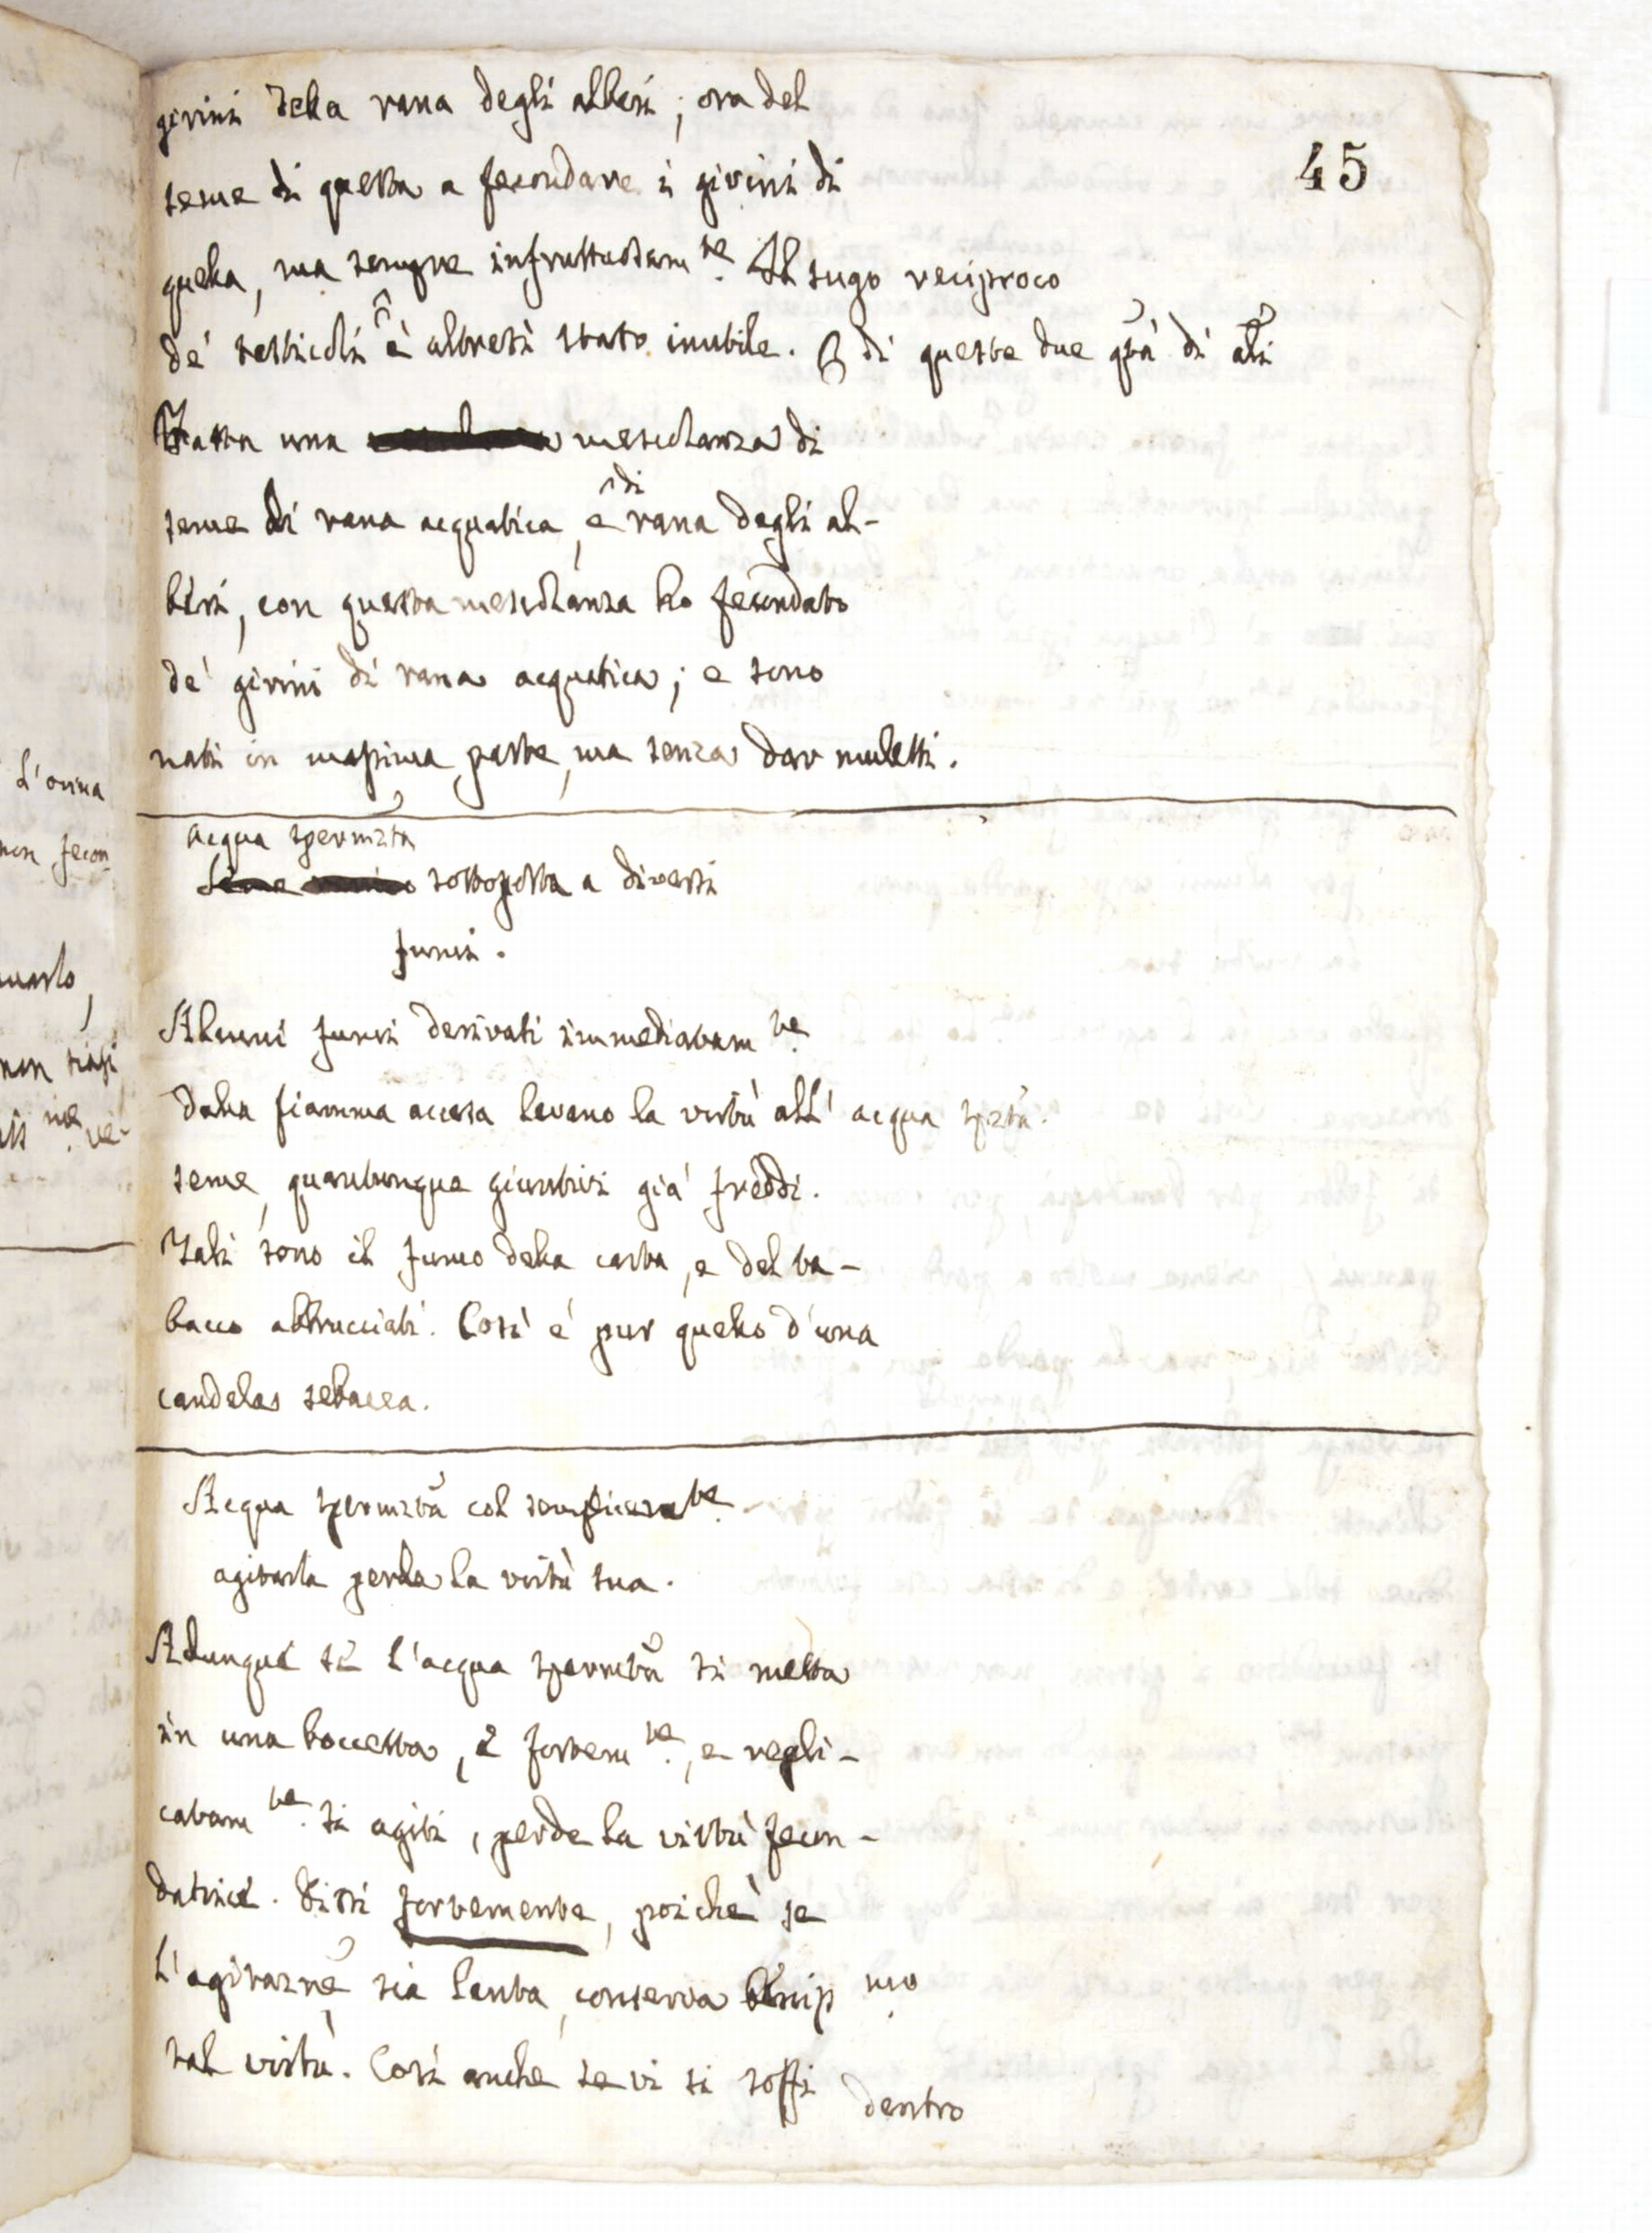 girini della rana degli alberi; ora del
45
seme di questa a fecondare i girini di
quella, ma sempre infruttuosam.te Il sugo reciproco
de' testicoli è altresì stato inutile. di queste due
Fatta una mescolanza di
seme di rana acquatica, e di rana degli al-
beri, con questa mescolanza ho fecondato
de' girini di rana acquatica; e sono
nati in massima parte, ma senza dar muletti.
acqua spermata
sottoposta a diversi
fumi.
Alcuni fumi derivati immediatam.te
dalla fiamma accesa levano la virtù all' acqua
seme, quantunque giuntivi già freddi.
Tali sono il fumo della carta, e del ta-
bacco abbrucciati. Così è pur quello d'una
candela sebacea.
Acqua col te
agitarla perde la virtù sua.
Adunque se l'acqua si metta
in una boccetta, e fortem.te, e repli-
catam.te si agiti, perde la virtù fecon-
datrice. Dissi fortemente, poichè se
l'agitazne sia lenta, conserva benissmo
tal virtù. Così anche se vi si soffi
dentro
L'orina
non fecon